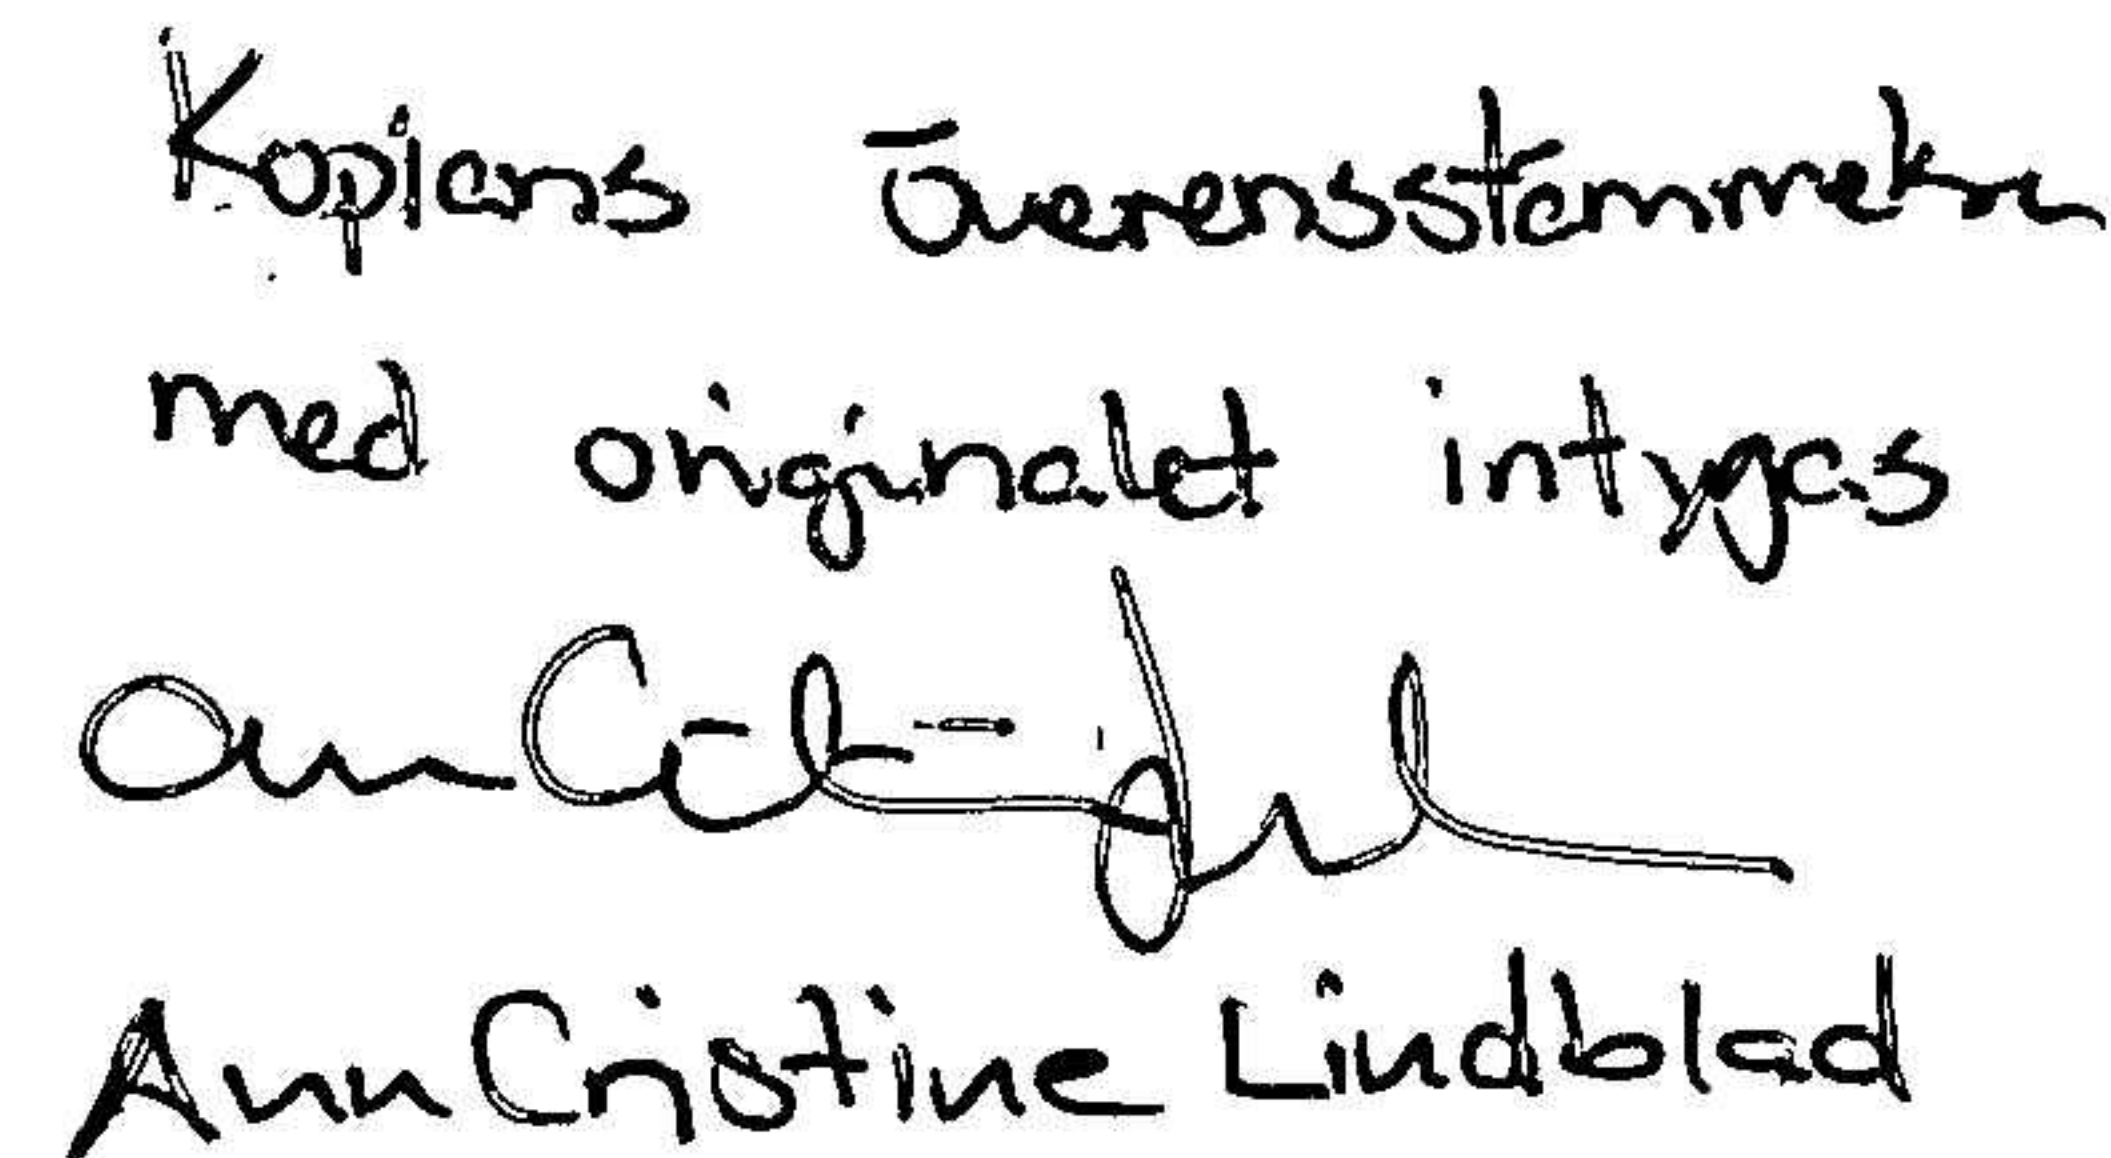 Kopians överensstämmelse
med originalet intygas
Ann Cristine Lindblad